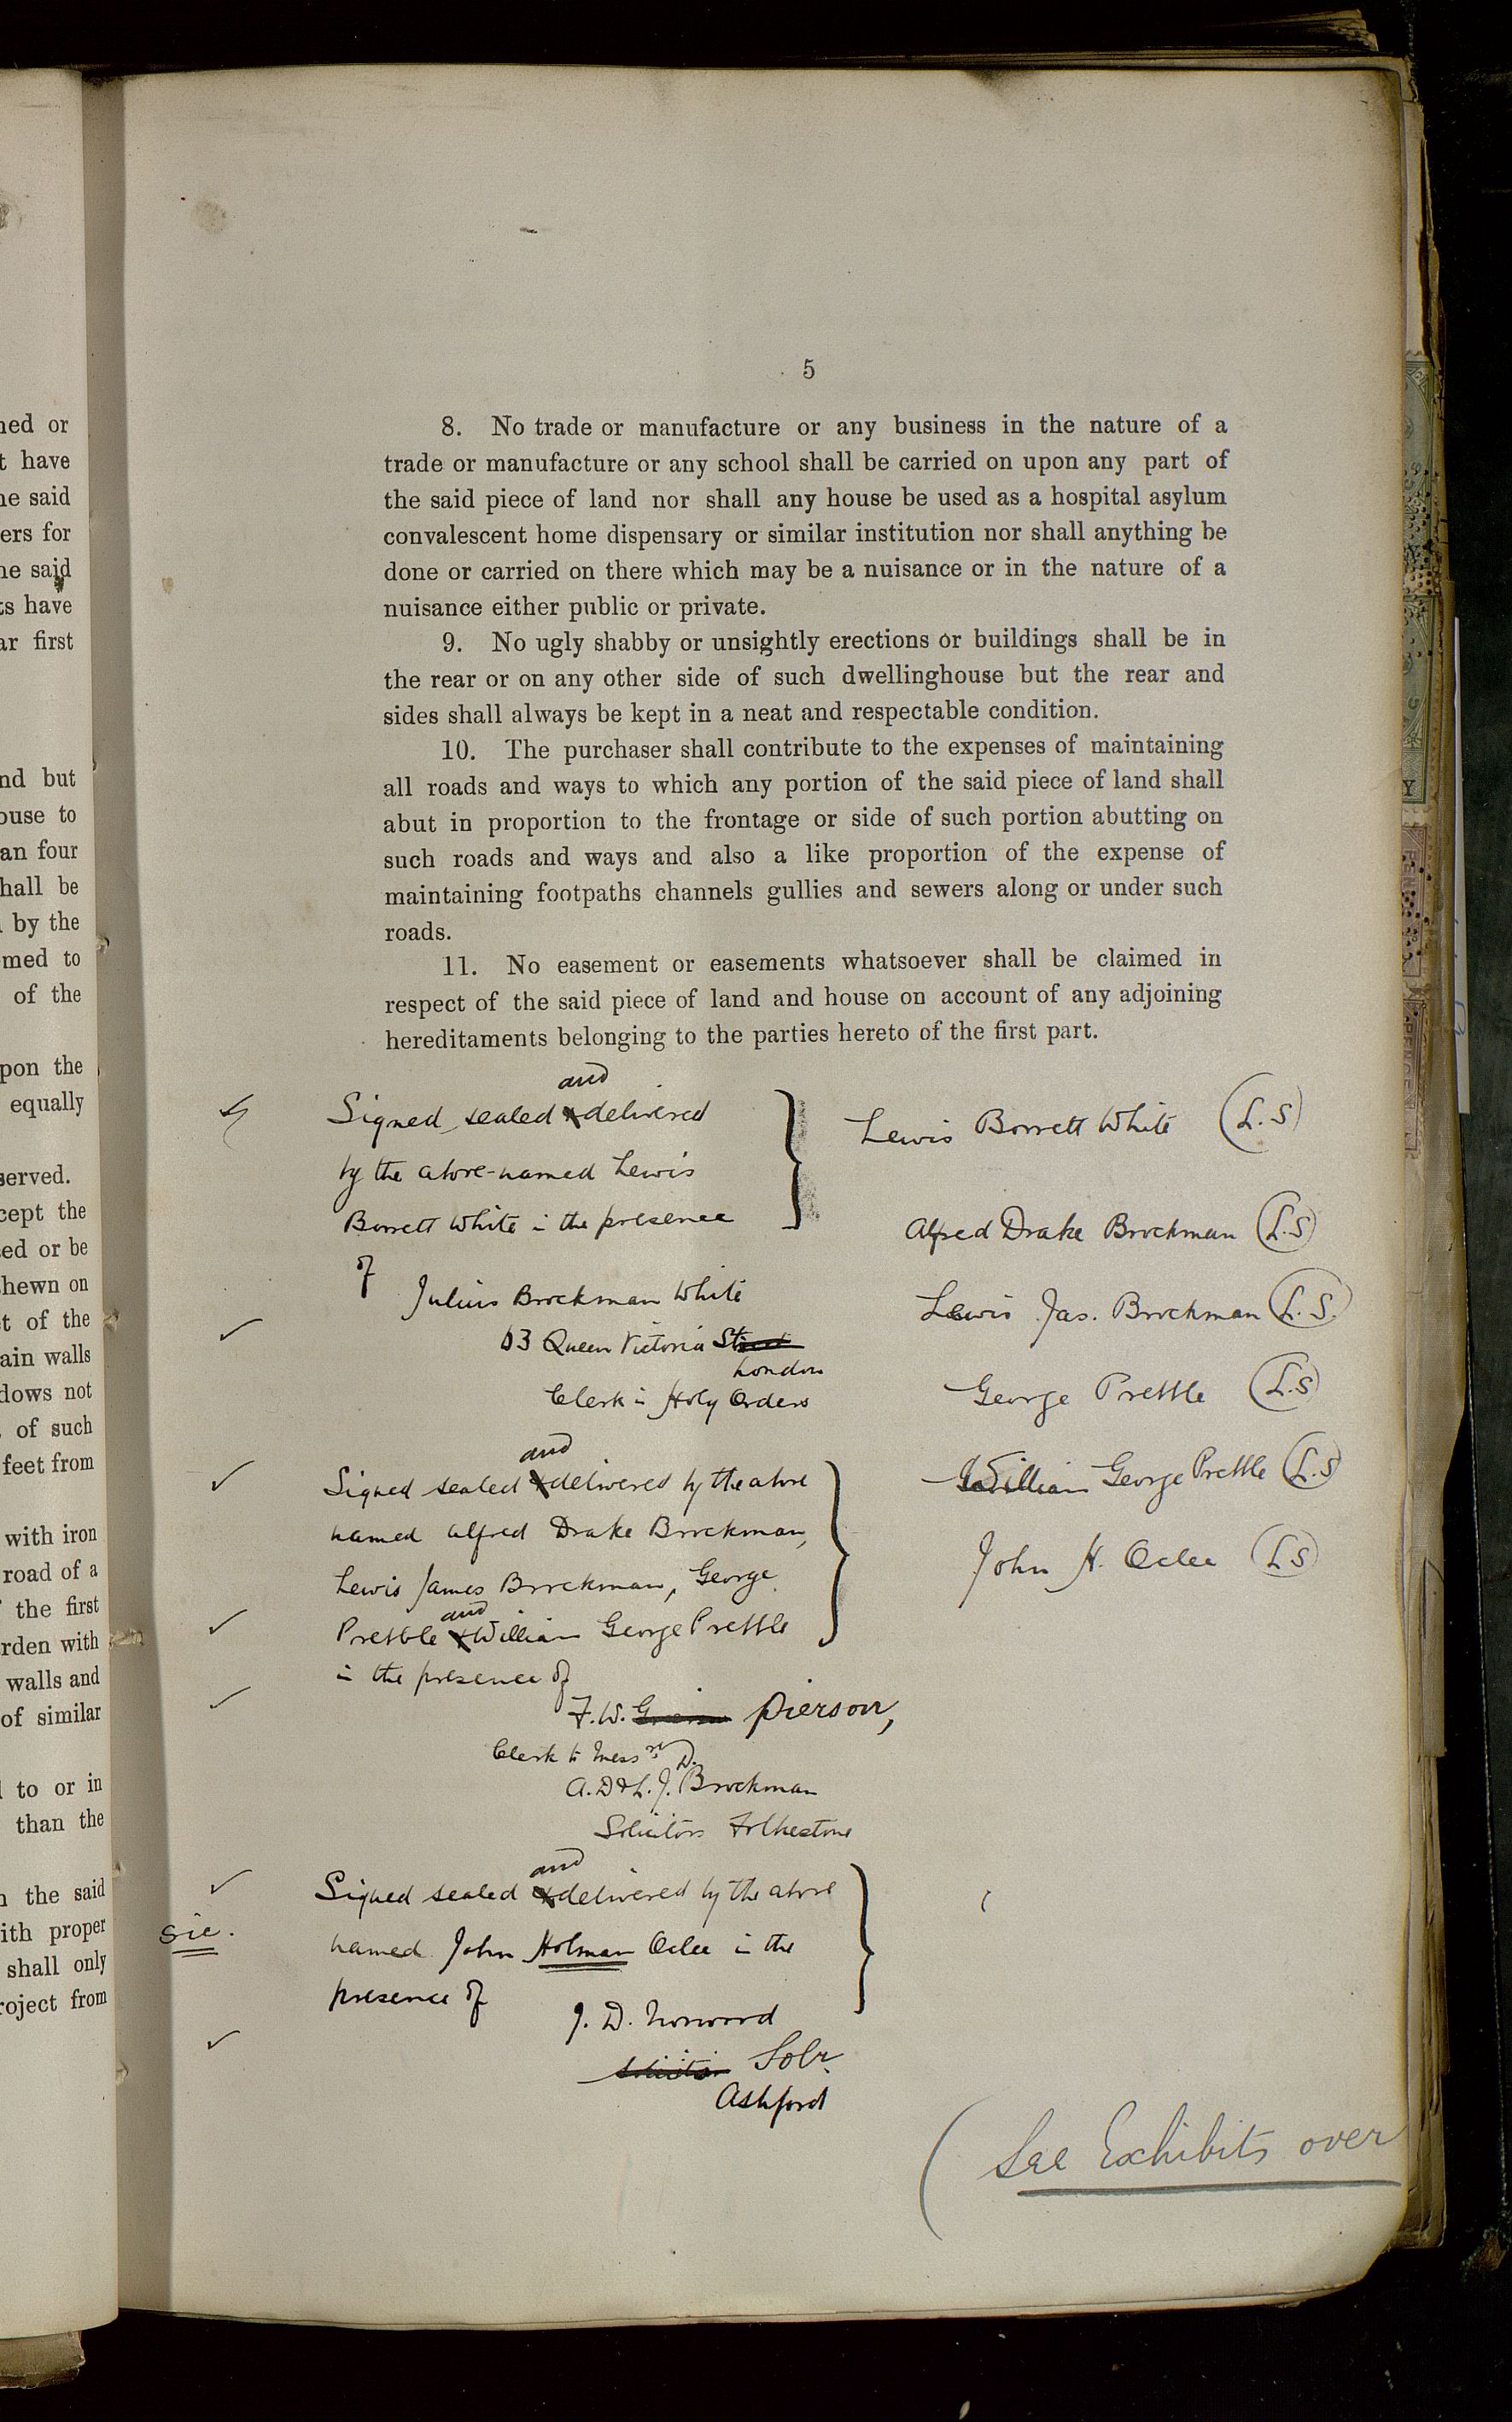 5
8. No trade or manufacture or any business in the nature of a
trade or manufacture or any school shall be carried on upon any part of
the said piece of land nor shall any house be used as a hospital asylum
convalescent home dispensary or similar institution nor shall anything be
done or carried on there which may be a nuisance or in the nature of a
nuisance either public or private.
9. No ugly shabby or unsightly erections or buildings shall be in
the rear or on any other side of such dwellinghouse but the rear and
sides shall always be kept in a neat and respectable condition.
10. The purchaser shall contribute to the expenses of maintaining
all roads and ways to which any portion of the said piece of land shall
abut in proportion to the frontage or side of such portion abutting on
such roads and ways and also a like proportion of the expense of
maintaining footpaths channels gullies and sewers along or under such
roads.
11. No easement or easements whatsoever shall be claimed in
respect of the said piece of land and house on account of any adjoining
hereditaments belonging to the parties hereto of the first part.
and
Signed sealed delivered
by the above-named Lewis
Borrett White in the presence
of
Julius Brockman White
63 Queen Victoria Street
London
Clerk in Holy Orders
and
Signed sealed delivered by the above
named Alfred Drake Brockman,
Lewis James Brockman, George
and
Prebble William George Prebble
in the presence of
F.W. Pierson,
Clerk to Messrs D.
A.D & L.J. Brockman
Solicitors Folkestone
and
Signed sealed delivered by the above
sic.
named John Holman Oclee in the
presence of
J. D. Norwood
Solicitor Solr
Ashford
Lewis Borrett White (L.S)
Alfred Drake Brockman (L.S)
Lewis Jas. Brockman (L.S.)
George Prebble (L.S)
William George Prebble (L.S)
John H. Oclee (LS)
(See Exhibits over
ned or
t have
he said
ers for
he said
ts have
ar first
nd but
ouse to
an four
hall be
by the
med to
of the
pon the
equally
served.
cept the
ed or be
shewn on
t of the
ain walls
dows not
of such
feet from
with iron
road of a
the first
rden with
walls and
of similar
to or in
than the
n the said
ith proper
shall only
roject from